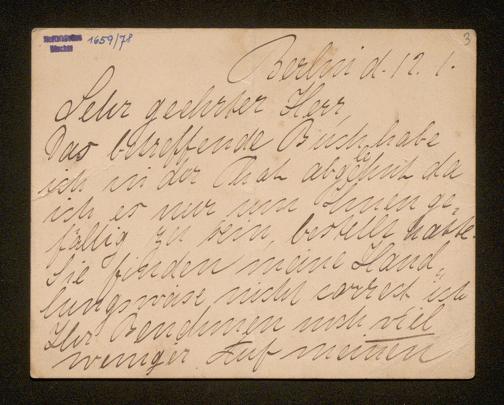 1659/78
3
Berlin d. 12. 1.
Sehr geehrter Herr
Das betreffende Buch habe
ich in der That abgelehnt da
ich es nur um Ihnen ge-
fällig zu sein, bestellt hatte.
Sie finden meine Hand-
lungsweise nicht correct ich
Ihr Benehmen noch viel
weniger. Auf meinen